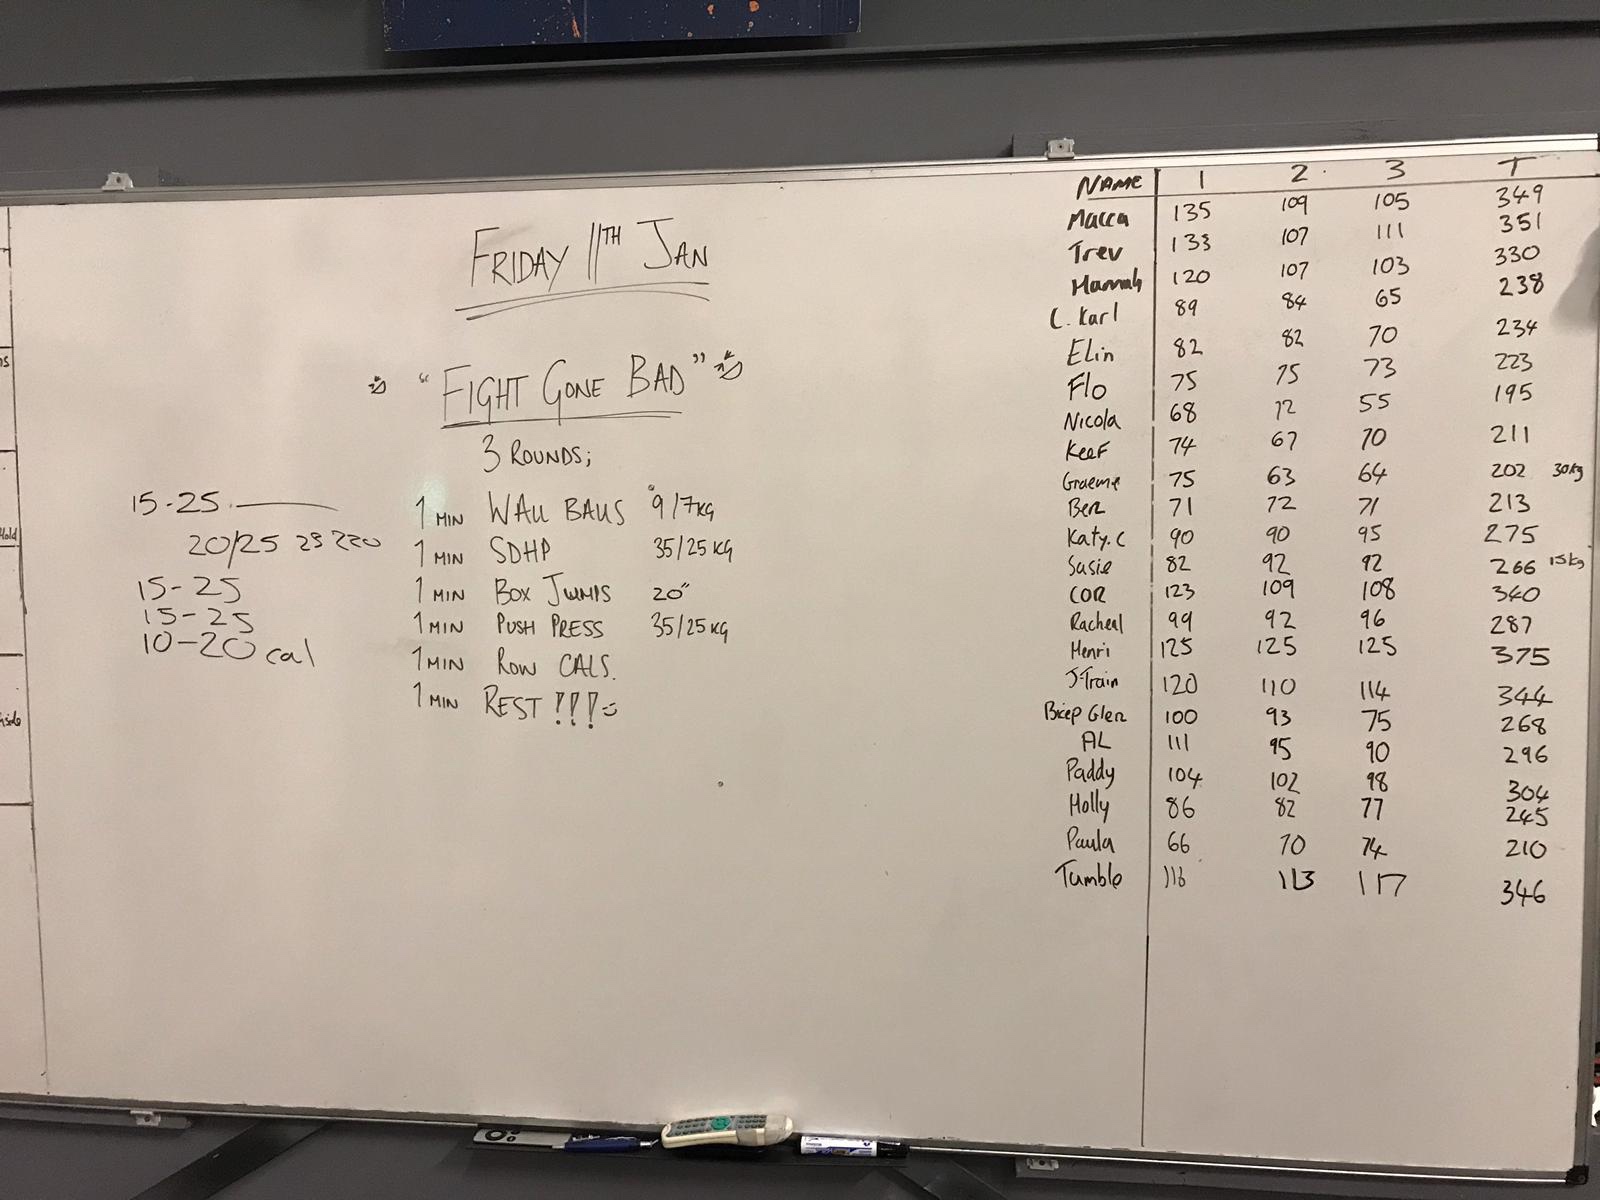 FRIDAY 11TH JAN
"FIGHT GONE BAD"
3 ROUNDS;
15-25
1 MIN WALL BALLS 9/7KG
20/25
1 MIN SDHP 35/25 KG
15-25
1 MIN BOX JUMPS 20"
15-25
1 MIN PUSH PRESS 35/25 KG
10-20 cal
1 MIN ROW CALS.
1 MIN REST !!!
NAME 1 2 3 T
Macca 135 109 105 349
Trev 133 107 111 351
Hannah 120 107 103 330
C. Karl 89 84 65 238
Elin 82 82 70 234
Flo 75 75 73 223
Nicola 68 72 55 195
Keef 74 67 70 211
Graeme 75 63 64 202 30kg
Ben 71 72 71 213
Katy.C 90 90 95 275
Susie 82 92 92 266 15kg
COR 123 109 108 340
Racheal 99 92 96 287
Henri 125 125 125 375
J-Train 120 110 114 344
Bicep Glen 100 93 75 268
AL 111 95 90 296
Paddy 104 102 98 304
Holly 86 82 77 245
Paula 66 70 74 210
Tumble 116 113 117 346
Hold